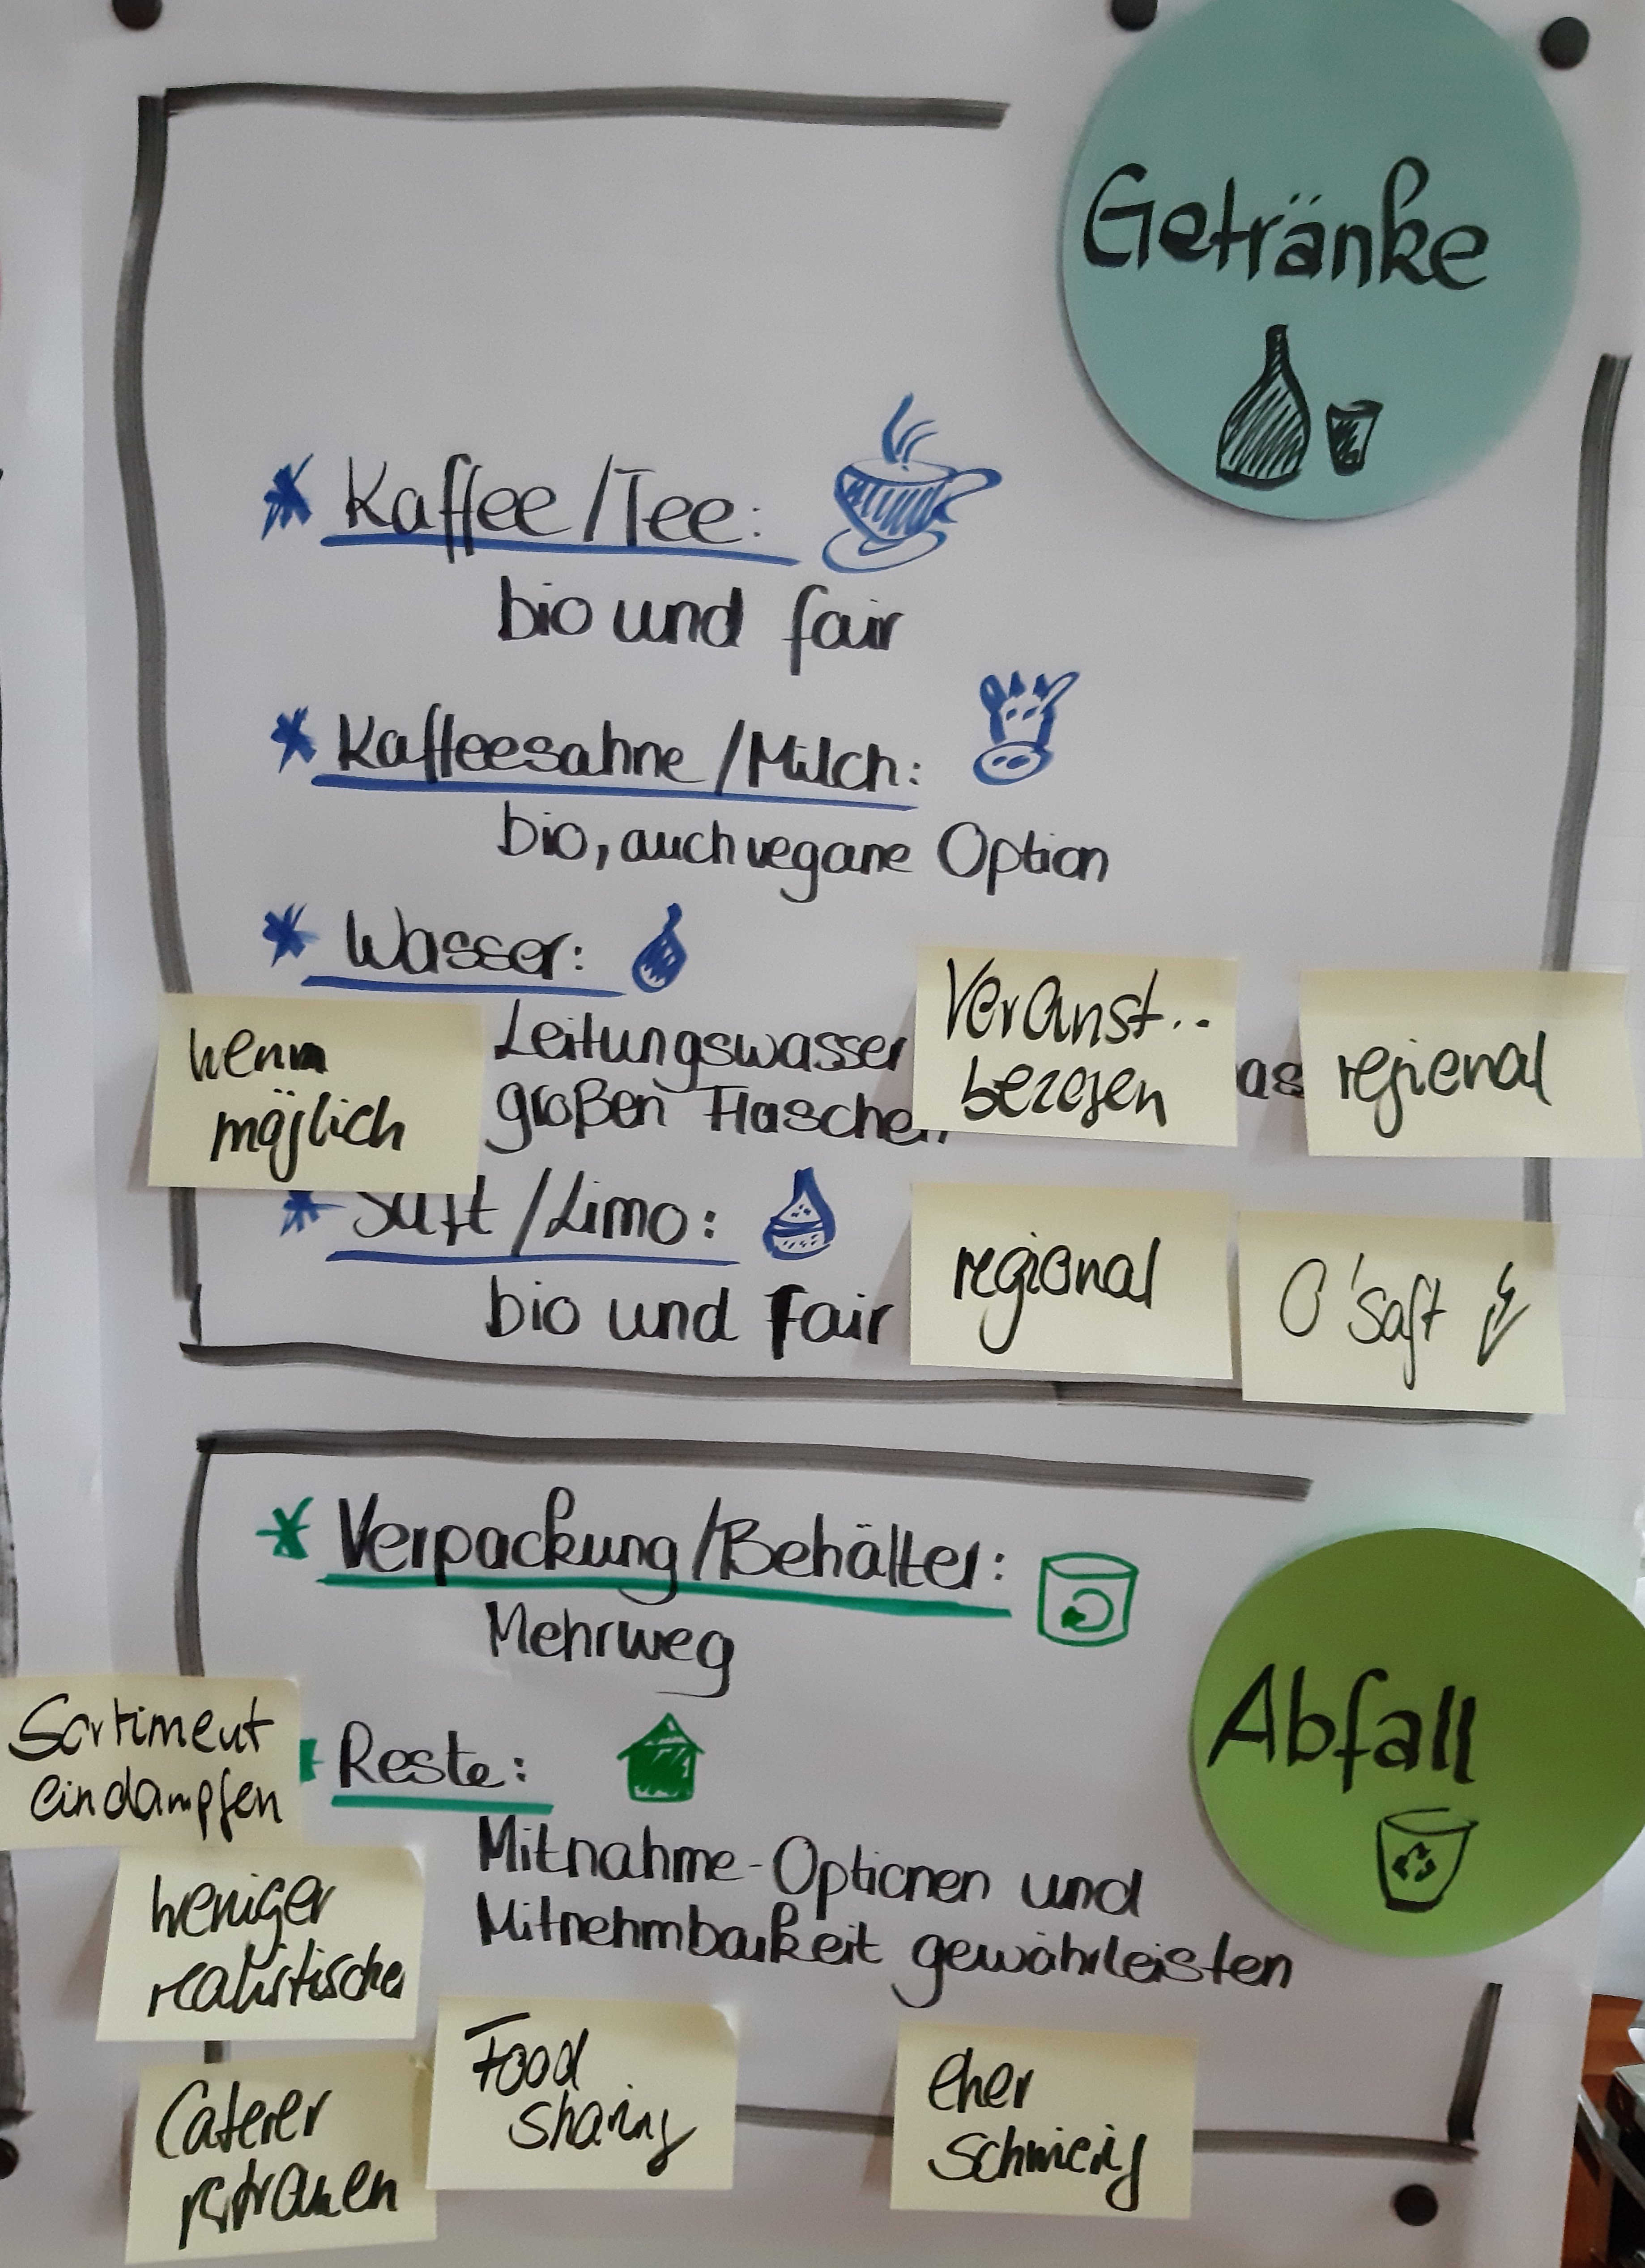 Getränke
Kaffee/Tee:
bio und fair
Kaffeesahne/Milch:
bio, auch vegane Option
Wasser:
wenn
möglich
Leitungswasser
großen Flaschen
Veranst..
bezogen
as
regional
Saft/Limo:
bio und Fair
regional
O'Saft
Verpackung/Behälter:
Mehrweg
Abfall
Sortiment
eindampfen
Reste:
Mitnahme-Optionen und
Mitnehmbarkeit gewährleisten
weniger
realistischer
Food
sharing
eher
schwierig
Caterer